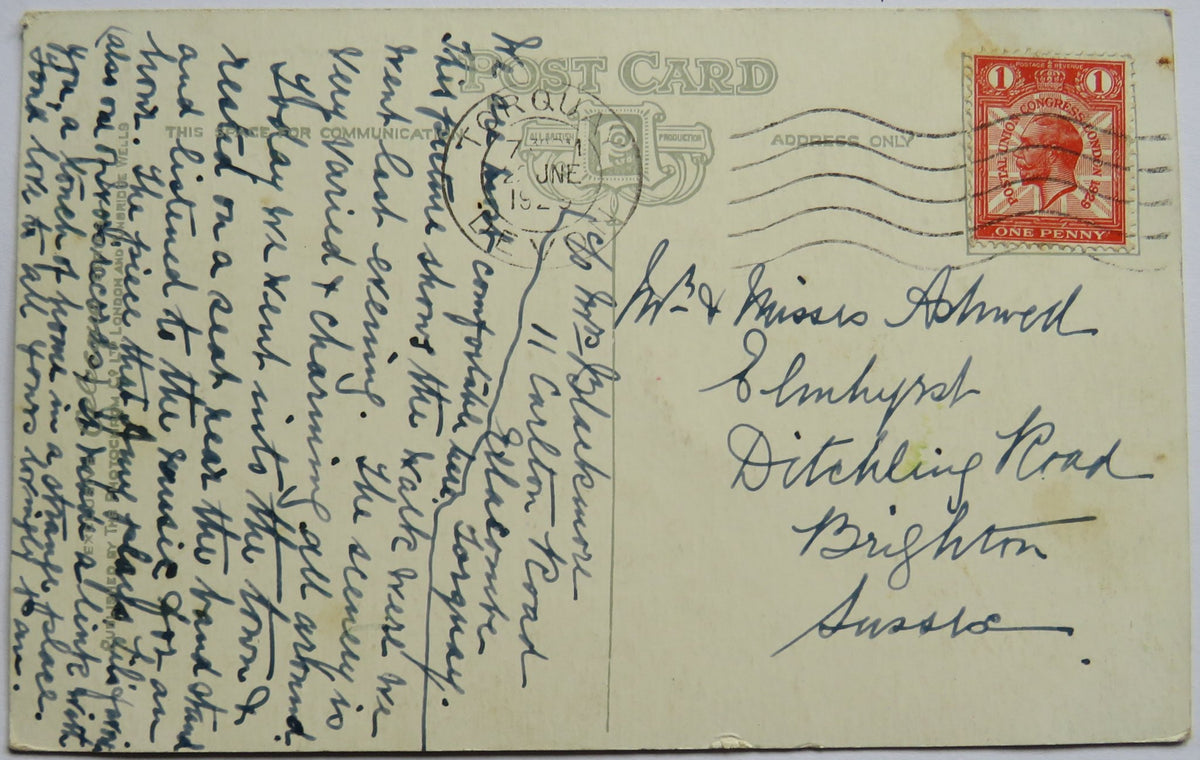 POST CARD
THIS SPACE FOR COMMUNICATION
ADDRESS ONLY
ALL BRITISH PRODUCTION
TORQUAY
JNE
192
POSTAGE & REVENUE
1 1
POSTAL UNION CONGRESS LONDON 1929
ONE PENNY
Mrs & Misses Ashwell
Elmhyrst
Ditchling Road
Brighton
Sussex
c/o Mrs Blackmore
11 Carlton Road
Ellacombe
Torquay.
We are most comfortable here.
This picture shows the walk were we
went last evening. The scenery is
very varied & charming all around.
Today we went into the town &
rested on a seat near the band stand
and listened to the music for an
hour. The piece that Amy plays
(also one of your records). It made a link with
you, a touch of home in a strange place.
Fond love to all yours lovingly
PUBLISHED BY THE PHOTOCHROM CO. LTD LONDON AND TUNBRIDGE WELLS